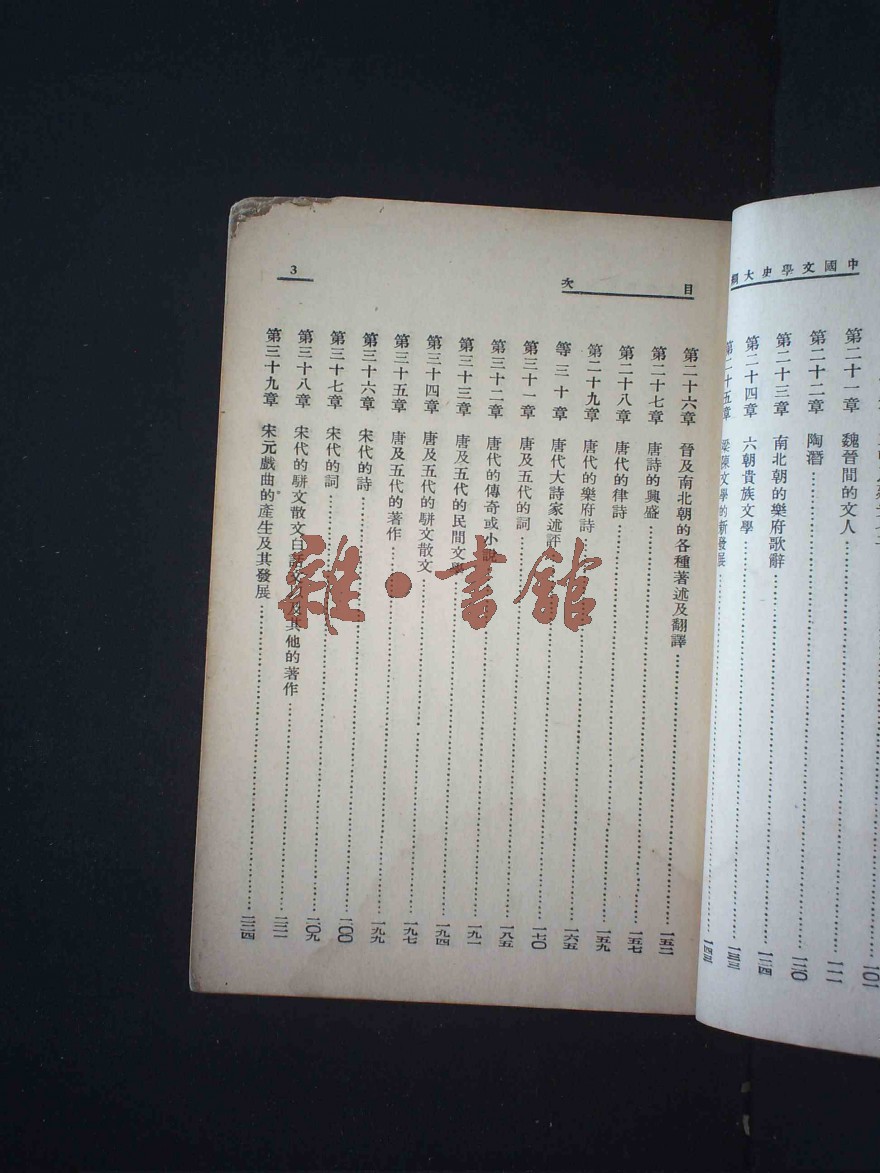 中國文學史大綱
第二十一章 魏晉間的文人……一一一
第二十二章 陶潛……一二〇
第二十三章 南北朝的樂府歌辭……一二四
第二十四章 六朝貴族文學……一三三
第二十五章 梁陳文學的新發展……一四三
目次
3
第二十六章 晉及南北朝的各種著述及翻譯……一五二
第二十七章 唐詩的興盛……一五七
第二十八章 唐代的律詩……一五九
第二十九章 唐代的樂府詩……一六五
等三十章 唐代大詩家述評……一七〇
第三十一章 唐及五代的詞……一八五
第三十二章 唐代的傳奇或小說……一九一
第三十三章 唐及五代的民間文學……一九四
第三十四章 唐及五代的駢文散文……一九七
第三十五章 唐及五代的著作……一九九
第三十六章 宋代的詩……二〇〇
第三十七章 宋代的詞……二〇九
第三十八章 宋代的駢文散文白話文及其他的著作……二二一
第三十九章 宋元戲曲的產生及其發展……二二四
雜·書館